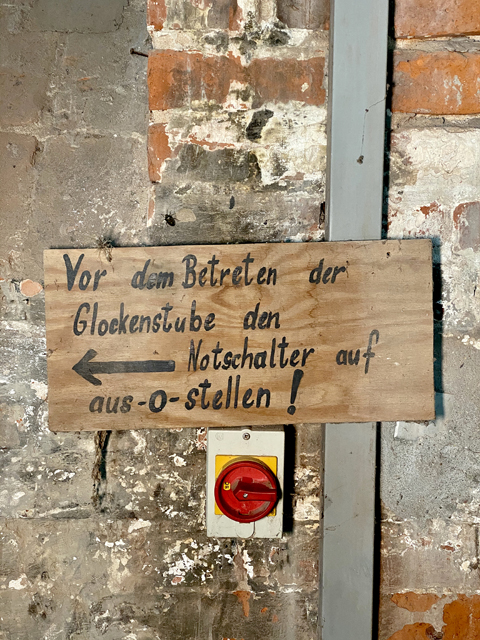 Vor dem Betreten der
Glockenstube den
← Notschalter auf
aus-o-stellen!